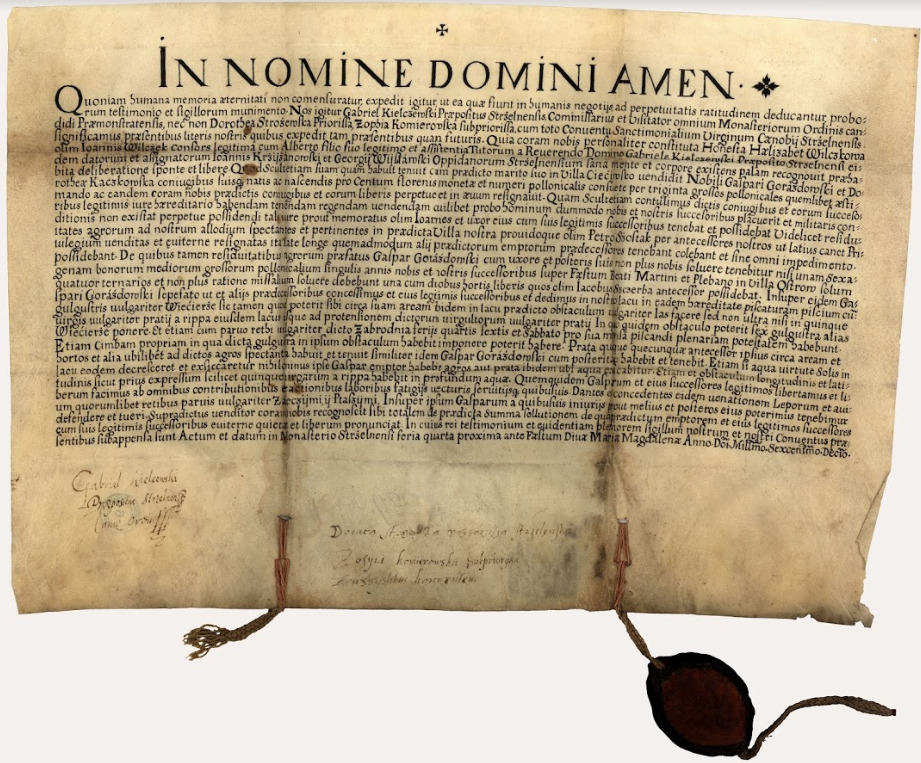 IN NOMINE DOMINI AMEN
Quoniam humana memoria æternitati non comensuratur, expedit igitur, ut ea quæ fiunt in humanis negotijs ad perpetuitatis ratitudinem deducantur, probo-
rum testimonio et sigillorum munimento. Nos igitur Gabriel Kielczenski Præpositus Strzelnensis Commissarius et Visitator omnium Monasteriorum Ordinis can-
didi Præmonstratensis, nec non Dorothea Strosenska Priorissa, Zophia Komerowska subpriorissa, cum toto Conventu Sanctimonialium Virginum Cænobij Strzelnensis.
significamus præsentibus literis nostris quibus expedit tam præsentibus quam futuris. Quia coram nobis personaliter constituta Honesta Hælizabet Wilczkowa
olim Ioannis Wilczek consors legitima cum Alberto filio suo legitimo et assistentia Tutorum a Reverendo Domino Gabriele Kielczenski Præposito Strzelnensi ei-
dem datorum et assignatorum Ioannis et Georgij Oppidanorum Strzelnensium sana mente et corpore existens palam recognovit præha
bita deliberatione sponte et libere Quia Scultetiam suam quam habuit tenuit cum prædicto marito suo in Villa vendidit Nobili Gaspari Gorasdowski et Do-
rotheæ conjugibus suisque natis ac nascendis pro Centum florenis monetæ et numeri pollonicalis per triginta grossos pollonicales quemlibet æsti-
mando ac eandem coram nobis prædictis conjugibus et eorum liberis perpetue et in ævum resignavit. Quam Scultetiam dictis conjugibus et eorum successo
ribus legitimis iure hæreditario habendam tenendam regendam vendendam cuilibet probo homini dummodo nobis et nostris successoribus placuerit et militaris con-
ditionis non existat perpetue possidendi prout memoratus olim Ioannes et uxor eius cum suis legitimis successoribus tenebat et possidebat Videlicet residu-
itates agrorum ad nostrum allodium spectantes et pertinentes in prædicta Villa nostra providoque olim Petro per antecessores nostros ut latius canet Pri-
vilegium venditas et eviterne resignatas ita late longe quemadmodum alij prædictorum emptorum prædecessores tenebant colebant et sine omni impedimento
possidebant. De quibus tamen residuitatibus agrorum præfatus Gaspar Gorasdowski cum uxore et posteris suis non plus nobis solvere tenebitur nisi unam sexa-
genam bonorum mediorum grossorum pollonicalium singulis annis nobis et nostris successoribus super Fæstum Beati Martini et Plebano in Villa Ostrow solum
quatuor ternarios et non plus ratione missalium solvere debebunt una cum duobus hortis liberis quos olim Iacobus antecessor possidebat. Insuper eidem Ga-
spari Gorasdowski sepefato ut et alijs prædecessoribus concessimus et eius legitimis successoribus et dedimus in nostro lacu in eadem hæreditate piscaturam piscium cū
gulgustris vulgariter Wiecierze sic tamen quod poterit sibi circa suam aream ibidem in lacu prædicto obstaculum vulgariter Ias facere sed non ultra nisi in quinque
virgis vulgariter pratij a rippa eiusdem lacus usque ad protensionem dictorum virgultorum vulgariter pratij In quo quidem obstaculo poterit sex gulgustra alias
Wiecierze ponere. Et etiam cum parvo reti vulgariter dicto Zabrodnia ferijs quartis sextis et Sabbato pro sua mensa piscandi plenariam potestatem habebunt.
Etiam Cimbam propriam in qua dicta gulgustra in ipsum obstaculum habebit imponere poterit habere. Prata quoque quæcunque antecessor ipsius circa aream et
hortos et alia ubilibet ad dictos agros spectantia habuit et tenuit similiter idem Gaspar Gorasdowski cum posteritate habebit et tenebit. Etiam si aqua virtute Solis in
lacu eodem decresceret et exsiccaretur nihilominus ipse Gaspar emptor habebit agros aut prata ibidem ubi aqua exsiccabitur. Etiam et obstaculum longitudinis et lati-
tudinis sicut prius expressum scilicet quinque virgarum a rippa habebit in profundum aquæ. Quemquidem Gasparum et eius successores legitimos libertamus et li-
berum facimus ab omnibus contributionibus exactionibus laboribus fatigijs vecturis servitijsque quibusuis. Dantes et concedentes eidem venationem Leporum et avi-
um quorumlibet retibus parvis vulgariter Zaeczijmi ij Ptaszijmi. Insuper ipsum Gasparum a quibusuis iniurijs prout melius et posteros eius poterimus tenebimur
defendere et tueri. Supradictus venditor coram nobis recognoscit sibi totalem de prædicta Summa sollutionem de qua prædictum emptorem et eius legitimos successores
cum suis legitimis successoribus eviterne quietat et liberum pronunciat. In cuius rei testimonium et evidentiam plenorem sigillum nostrum et nostri Conventus præ-
sentibus subappensa sunt Actum et datum in Monasterio Strzelnensi feria quarta proxima ante Fæstum Divæ Mariæ Magdalenæ Anno Doi Millmo Sexcentmo Decio.
Gabriel Kielcenski
Præpositus Strzelnensis
Dorota
Zofija Komorowska